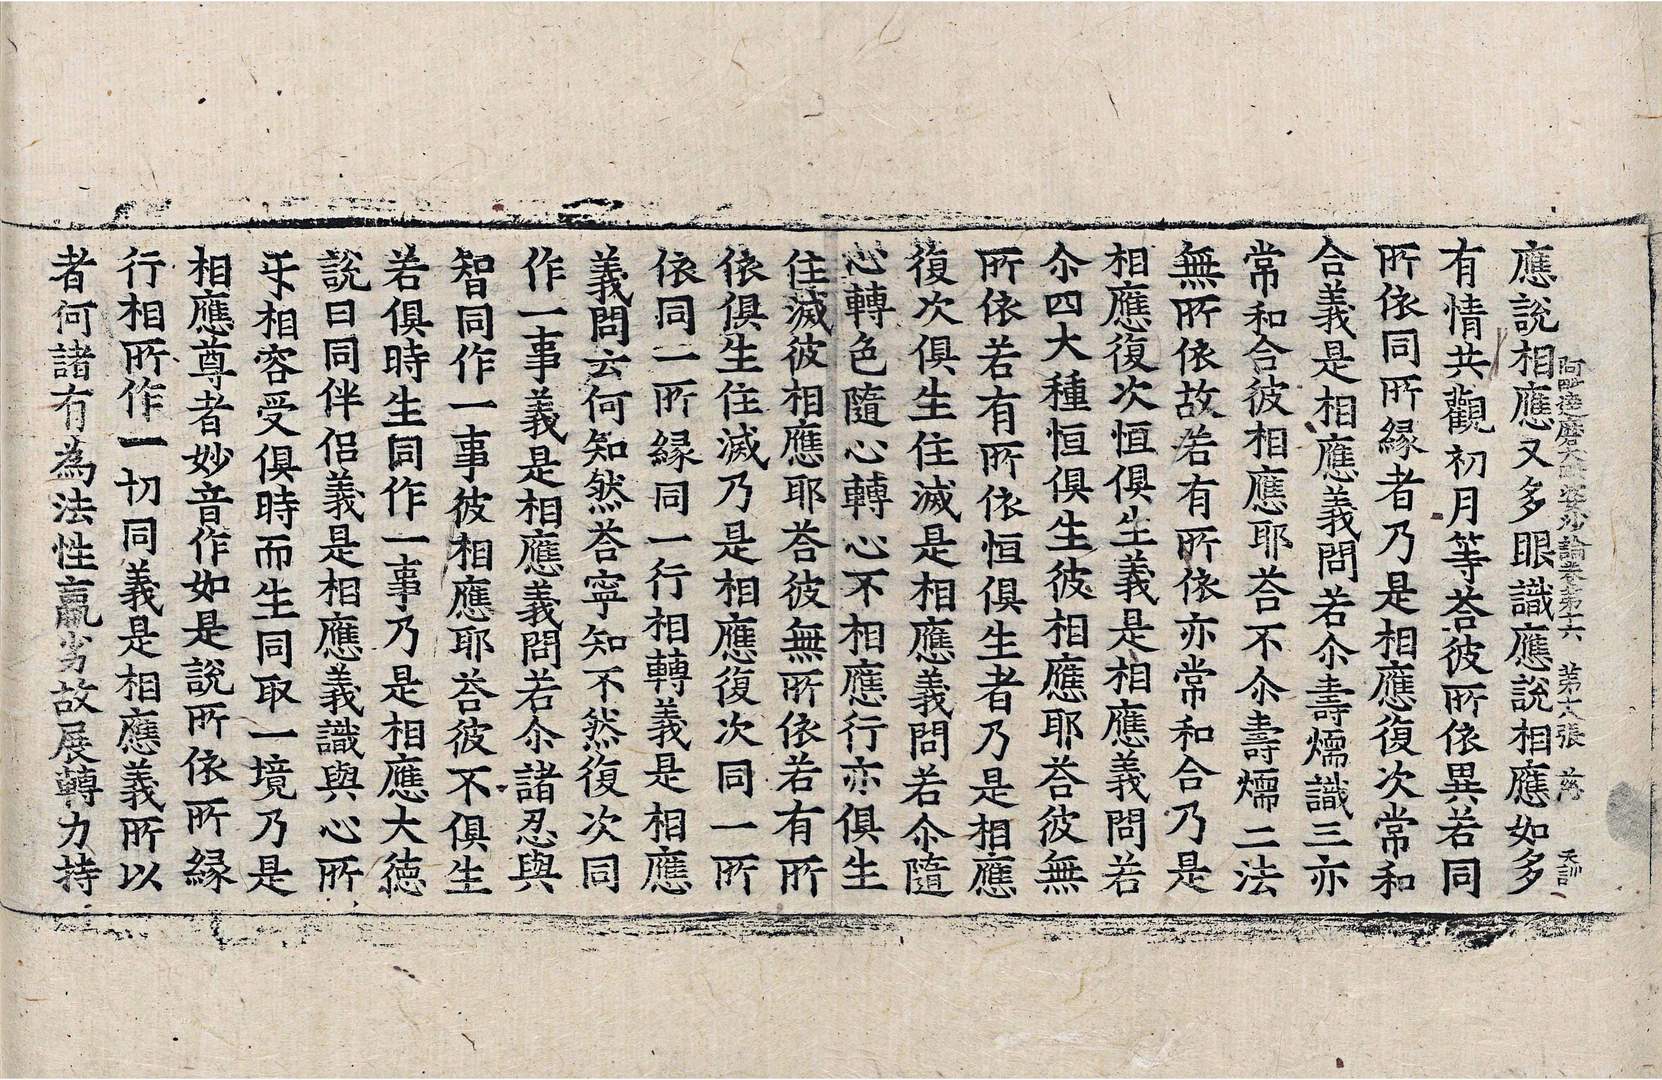 阿毗達磨大毗婆沙論卷第十六 第六張 天訓
應說相應又多眼識應說相應如多
有情共觀初月等荅彼所依異若同
所依同所緣者乃是相應復次常和
合義是相應義問若尒壽煗識三亦
常和合彼相應耶荅不尒壽煗二法
無所依故若有所依亦常和合乃是
相應復次恒俱生義是相應義問若
尒四大種恒俱生彼相應耶荅彼無
所依若有所依恒俱生者乃是相應
復次俱生住滅是相應義問若尒隨
心轉色隨心轉心不相應行亦俱生
住滅彼相應耶荅彼無所依若有所
依俱生住滅乃是相應復次同一所
依同一所緣同一行相轉義是相應
義問云何知然荅寧知不然復次同
作一事義是相應義問若尒諸忍與
智同作一事彼相應耶荅彼不俱生
若俱時生同作一事乃是相應大德
說曰同伴侶義是相應義識與心所
互相容受俱時而生同取一境乃是
相應尊者妙音作如是說所依所緣
行相所作一切同義是相應義所以
者何諸有為法性羸劣故展轉力持